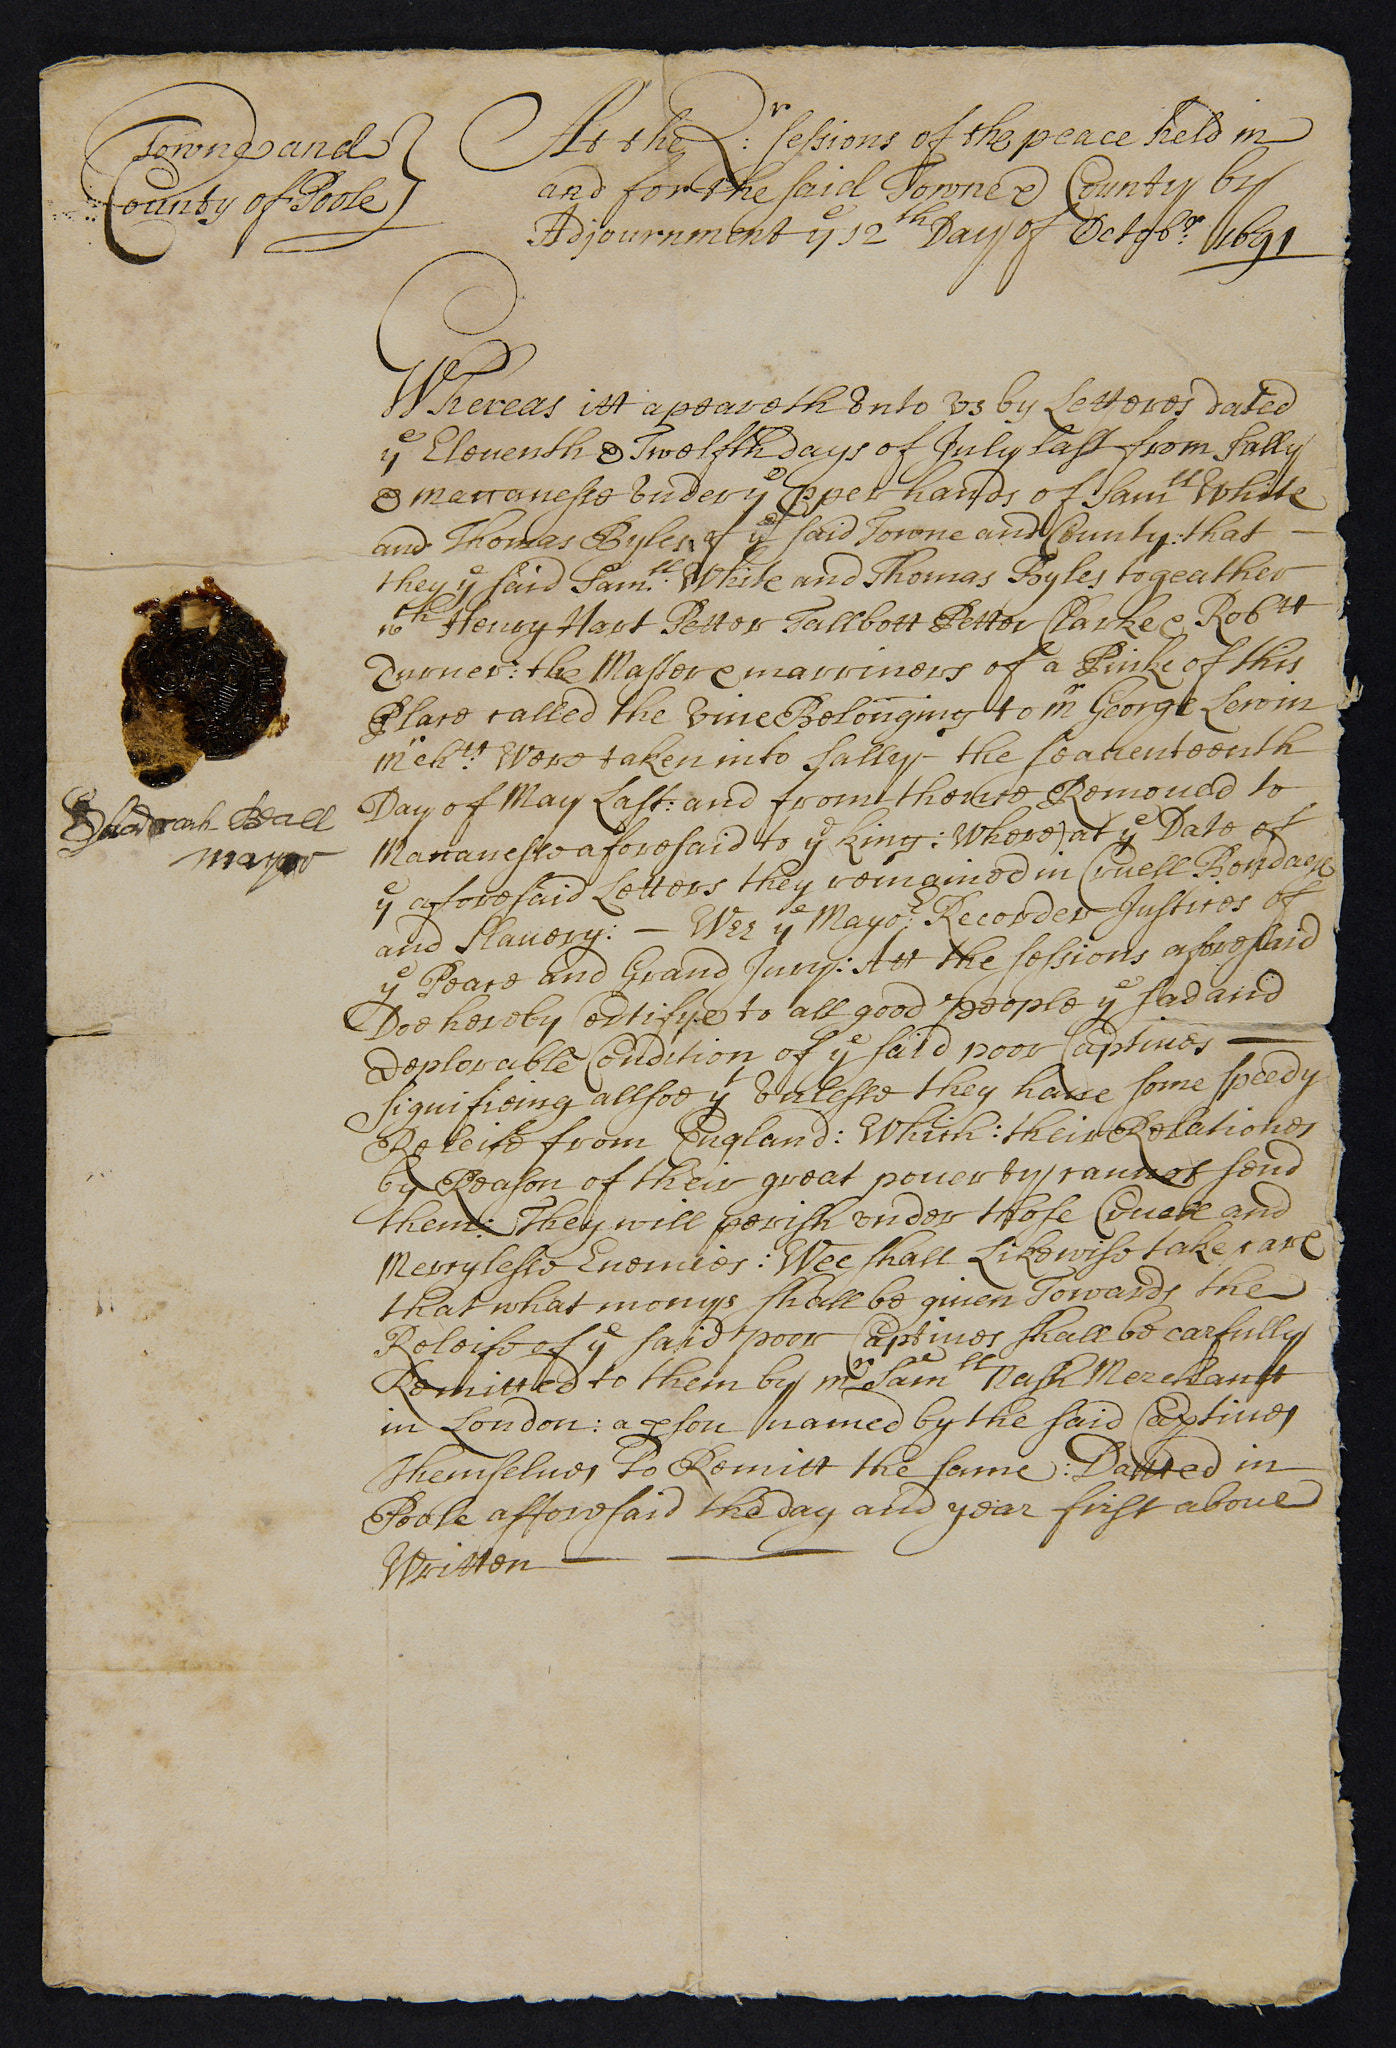 Towne and
County of Poole
At the Qr: sessions of the peace held in
and for the said Towne & County by
Adjournment ye 12th Day of Octobr: 1691
Whereas itt apeareth Vnto vs by Letteres dated
ye Eleuenth & Twelfth days of July last from Sally
& Macanesse Vnder ye Proper hands of Samll White
and Thomas Byles of ye said Towne and County: that —
they ye said Samll: White and Thomas Byles togeather
wth Henry Hart Petter Tallbott Petter Clarke & Robtt
Turner: the Master & marriners of a Pinke of this
Place called the Vine Belonging to mr George Lewin
mrchtt: Were taken into Sally — the seauenteenth
Day of May Last: and from thence Remoued to
Macanesse aforesaid to ye King: Where at ye Date of
ye aforesaid Letters they remained in Cruell Bondage
and Slauery: — Wee ye Mayor: Recorder Justices of
ye Peace and Grand Jury: Att the sessions aforesaid
Doe hereby Certifye to all good people ye sad and
deplorable Condition of ye said poor Captiues —
signifieing allsoe yt Vnlesse they haue some speedy
Releife from England: Which: their Relationes
by Reason of their great pouerty cannot send
them: They will perish vnder those Cruell and
Mercylesse Enemies: Wee shall Likewise take care
that what monys shall be giuen Towards the
Releife of ye said poor Captiues shall be carfully
Remitted to them by mr Samll Nash Merchantt
in London: a pson named by the said Captiues
themselues To Remitt the same: Datted in
Poole afforesaid the day and year first aboue
Written
Shadrach Beall
mayor